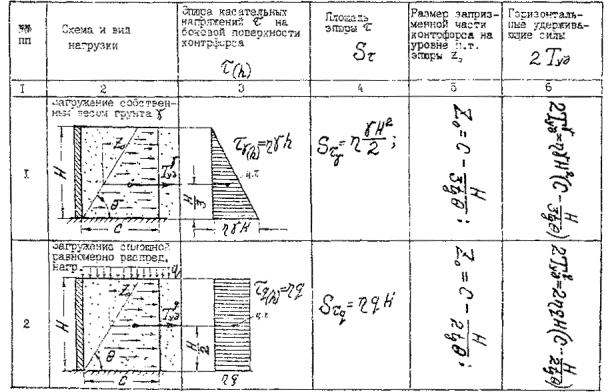 №№ пп
Схема и вид нагрузки
Эпюра касательных напряжений τ на боковой поверхности контрфорса τ(h)
Площадь эпюры τ Sτ
Размер запризменной части контрфорса на уровне ц.т. эпюры Z₀
Горизонтальные удерживающие силы 2Tуд
1 2 3 4 5 6
1
Загружение собственным весом грунта γ
Z₀
H
Tуд^γ
θ
C
H/3
ц.т
ηγH
τγ(h)=ηγh
Sτγ=η γH²/2;
Z₀=C-H/3tgθ;
2Tуд^γ=ηγH²(C-H/3tgθ)
2
Загружение сплошной равномерно распред. нагр.
q
Z₀
H
Tуд^q
θ
C
H/2
ц.т
ηq
τq(h)=ηq
Sτq=ηqH
Z₀=C-H/2tgθ;
2Tуд^q=2ηqH(C-H/2tgθ)